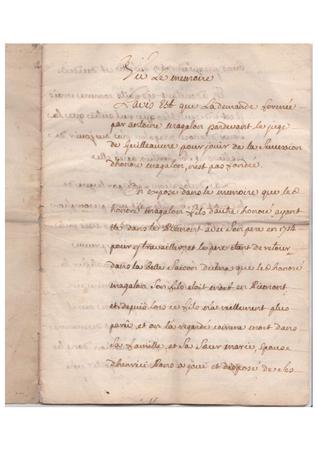 Veu Le memoire
L'avis Est que La demande formée
par antoine magalon pardevant le juge
de Guilleaume pour jouir de la Succession
d'honoré magalon, n'est pas fondée.
il expose dans le memoire, que le d
honoré magalon fils d'autre honoré ayant
Eté dans le Piémont avec son pere en 1714
pour y travailler, et le pere étant de retour
dans la Belle Saison declara que le d honoré
magalon son fils étoit mort en Piemont
et depuis lors ce fils n'a réellement plus
paru, et on la regardé comme mort dans
Sa famille, et Sa Sœur marie, Epouse
d'henrici a joui et disposé de ses